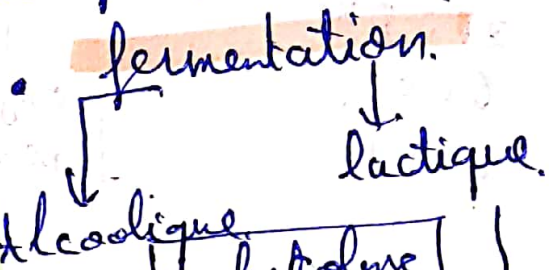 fermentation.
lactique.
Alcoolique